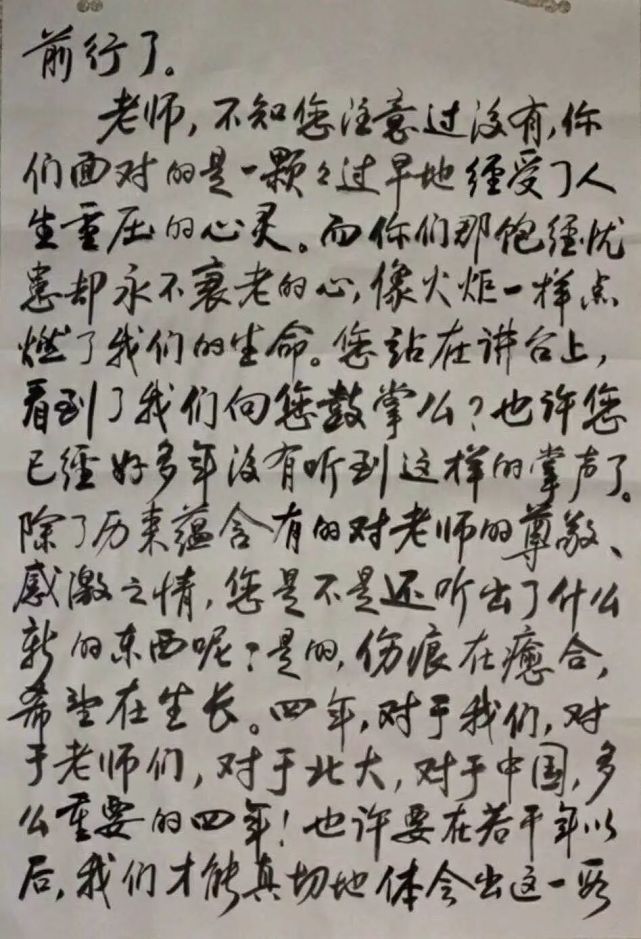 前行了。
老师，不知您注意过没有，你
们面对的是一颗々过早地经受了人
生重压的心灵。而你们那饱经忧
患却永不衰老的心，像火炬一样点
燃了我们的生命。您站在讲台上，
看到了我们向您鼓掌么？也许您
已经好多年没有听到这样的掌声了。
除了历来蕴含有的对老师的尊敬、
感激之情，您是不是还听出了什么
新的东西呢？是的，伤痕在癒合，
希望在生长。四年，对于我们，对
于老师们，对于北大，对于中国，多
么重要的四年！也许要在若干年以
后，我们才能真切地体会出这一段